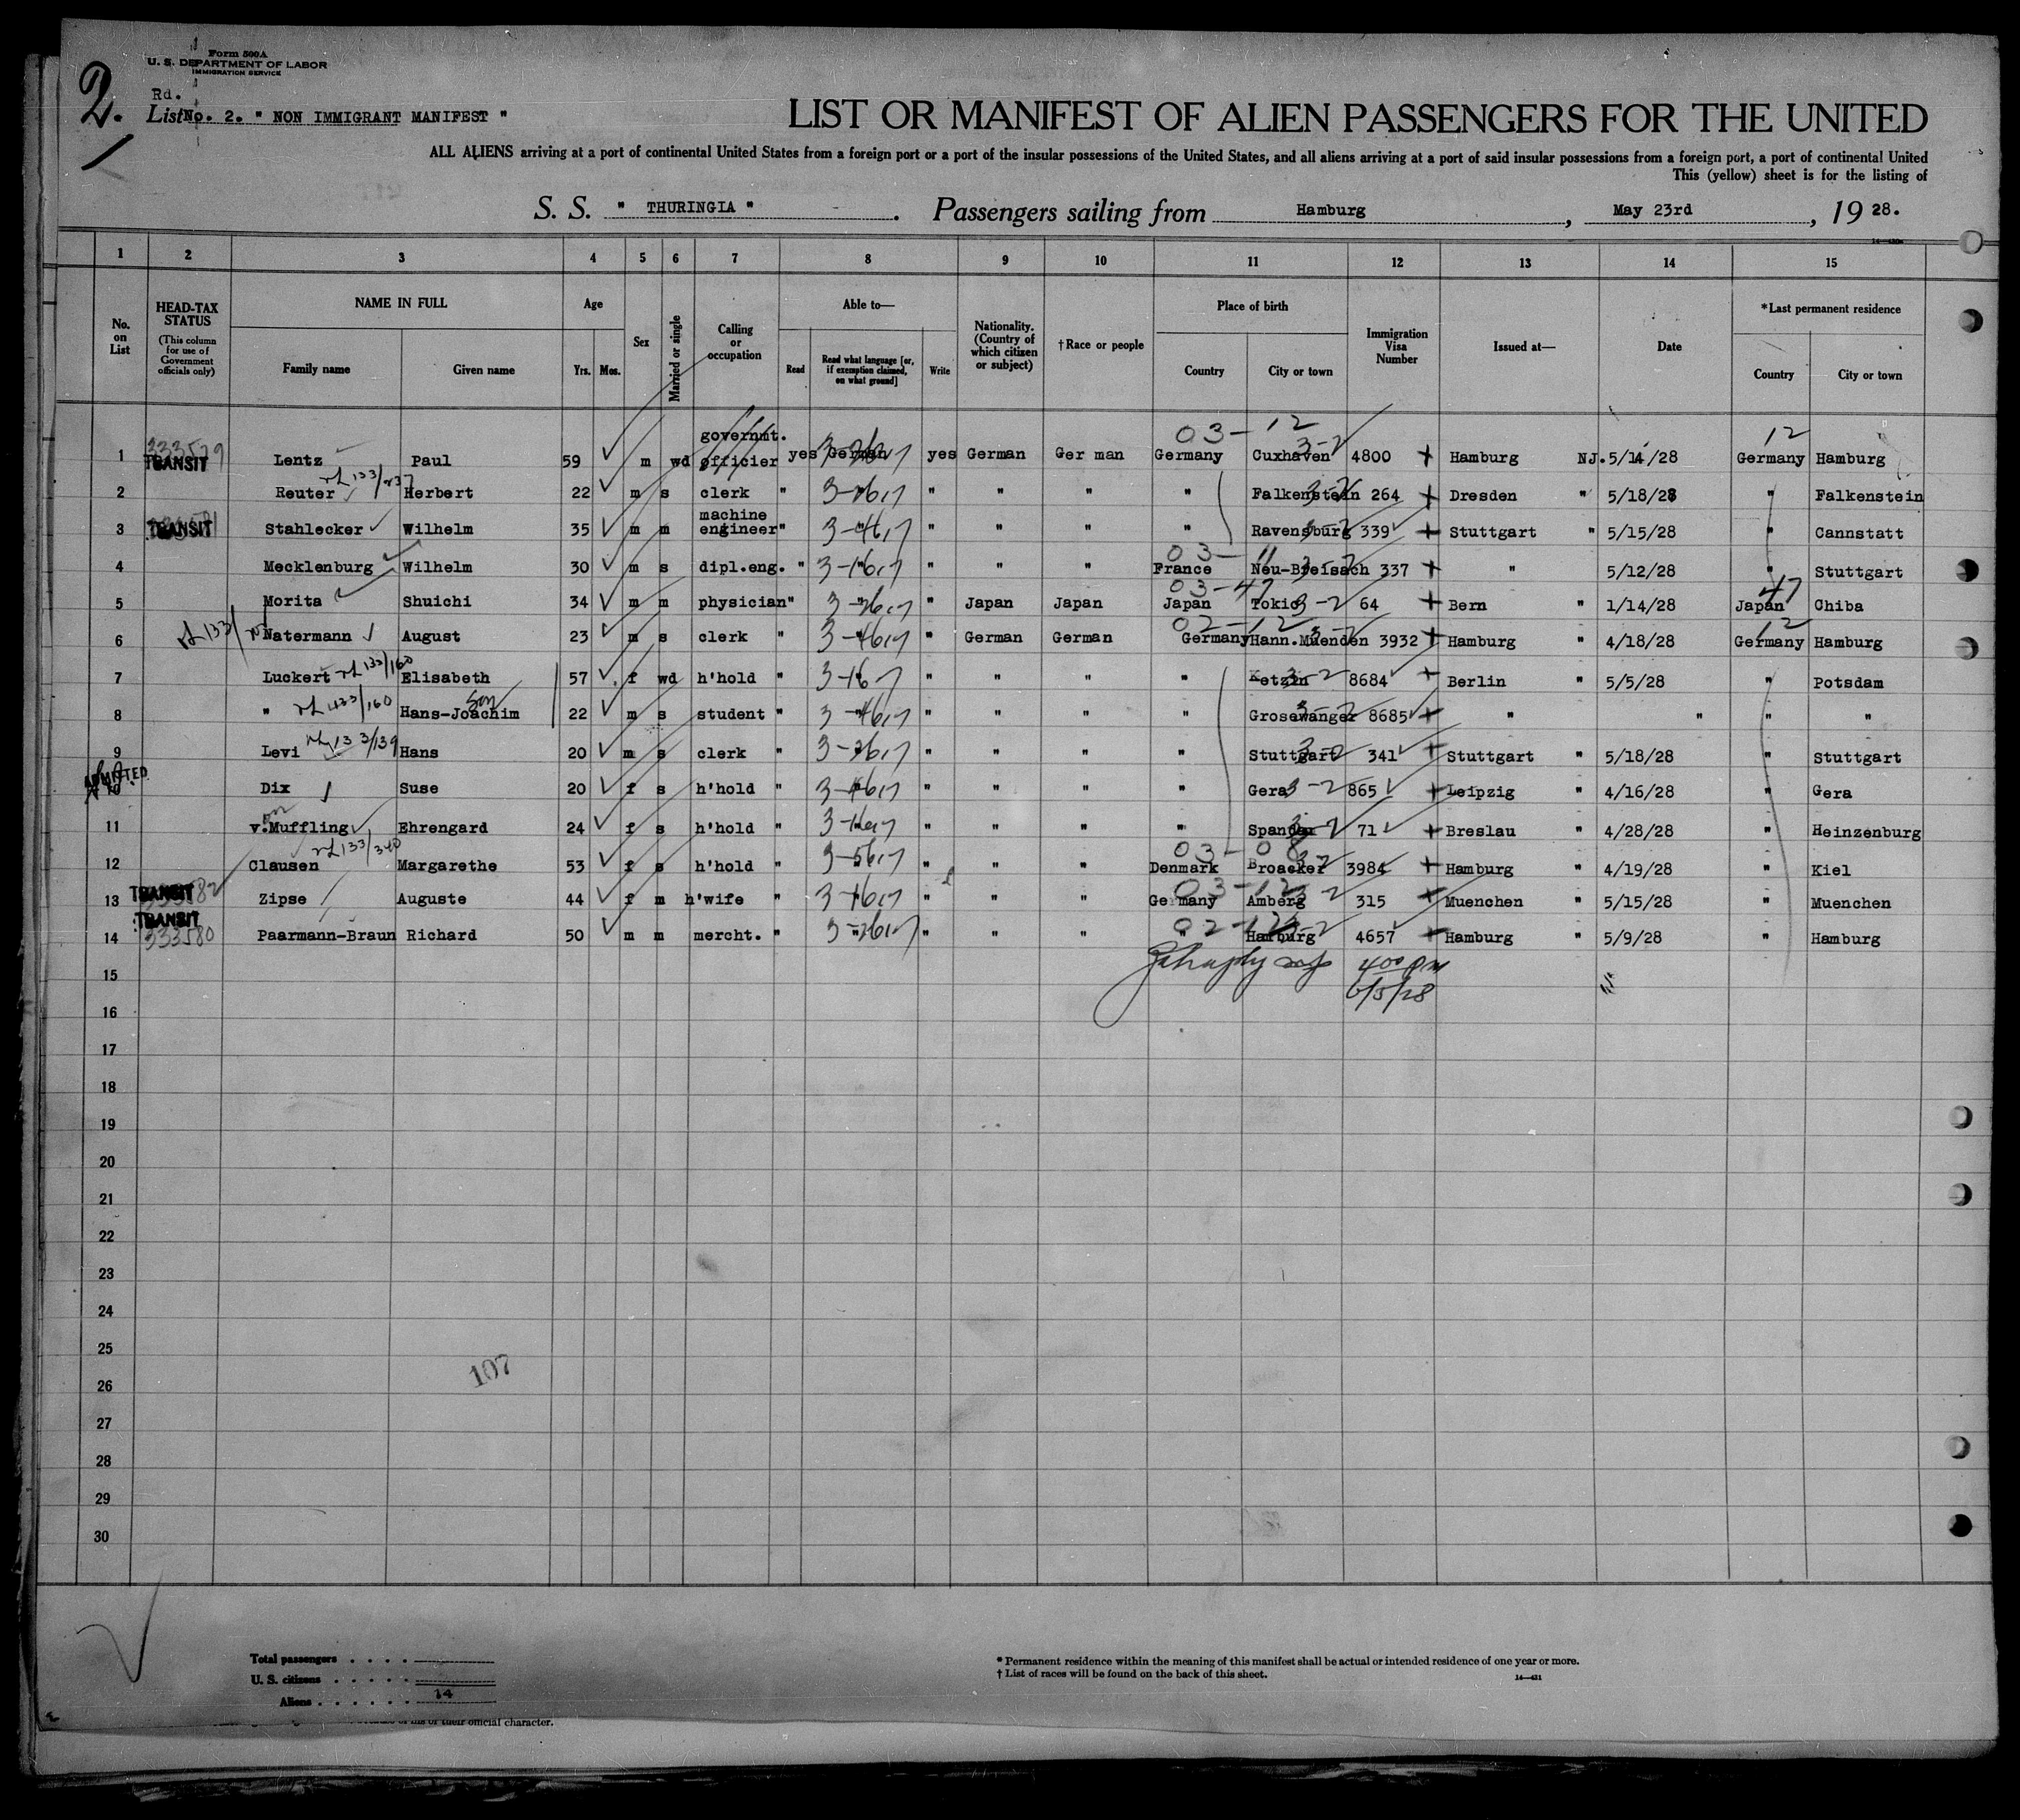 Form 500A
U. S. DEPARTMENT OF LABOR
IMMIGRATION SERVICE
2.
Rd.
List No. 2. " NON IMMIGRANT MANIFEST "
LIST OR MANIFEST OF ALIEN PASSENGERS FOR THE UNITED
ALL ALIENS arriving at a port of continental United States from a foreign port or a port of the insular possessions of the United States, and all aliens arriving at a port of said insular possessions from a foreign port, a port of continental United
This (yellow) sheet is for the listing of
S. S. " THURINGIA " . Passengers sailing from Hamburg , May 23rd , 19 28.
1 2 3 4 5 6 7 8 9 10 11 12 13 14 15
No. on List
HEAD-TAX STATUS
(This column for use of Government officials only)
NAME IN FULL
Family name Given name
Age
Yrs. Mos.
Sex
Married or single
Calling or occupation
Able to—
Read
Read what language [or, if exemption claimed, on what ground]
Write
Nationality. (Country of which citizen or subject)
†Race or people
Place of birth
Country City or town
Immigration Visa Number
Issued at—
Date
*Last permanent residence
Country City or town
03-12 12
1 333579 TRANSIT Lentz Paul 59 m wd governmt. officier yes German yes German Ger man Germany Cuxhaven 4800 Hamburg NJ. 5/14/28 Germany Hamburg
2 Reuter Herbert 22 m s clerk " " " " " " Falkenstein 264 Dresden " 5/18/28 " Falkenstein
3 TRANSIT Stahlecker Wilhelm 35 m m machine engineer " " " " " " Ravensburg 339 Stuttgart " 5/15/28 " Cannstatt
03-11
4 Mecklenburg Wilhelm 30 m s dipl.eng. " " " " " France Neu-Breisach 337 " 5/12/28 " Stuttgart
03-47 47
5 Morita Shuichi 34 m m physician " " " Japan Japan Japan Tokio 64 Bern " 1/14/28 Japan Chiba
02-12 12
6 Natermann August 23 m s clerk " " " German German Germany Hann.Muenden 3932 Hamburg " 4/18/28 Germany Hamburg
7 Luckert Elisabeth 57 f wd h'hold " " " " " " Ketzin 8684 Berlin " 5/5/28 " Potsdam
8 " son Hans-Joachim 22 m s student " " " " " " Grosewanger 8685 " " " "
9 Levi Hans 20 m s clerk " " " " " " Stuttgart 341 Stuttgart " 5/18/28 " Stuttgart
ADMITTED
10 Dix Suse 20 f s h'hold " " " " " " Gera 865 Leipzig " 4/16/28 " Gera
11 v.Muffling Ehrengard 24 f s h'hold " " " " " " Spandau 71 Breslau " 4/28/28 " Heinzenburg
03-08
12 Clausen Margarethe 53 f s h'hold " " " " " Denmark Broacker 3984 Hamburg " 4/19/28 " Kiel
03-12
13 TRANSIT Zipse Auguste 44 f m h'wife " " " " " Germany Amberg 315 Muenchen " 5/15/28 " Muenchen
02-12
14 TRANSIT 333580 Paarmann-Braun Richard 50 m m mercht. " " " " " " Hamburg 4657 Hamburg " 5/9/28 " Hamburg
15 400 PM
6/5/28
16
17
18
19
20
21
22
23
24
25
107
26
27
28
29
30
Total passengers
U. S. citizens
Aliens 14
* Permanent residence within the meaning of this manifest shall be actual or intended residence of one year or more.
† List of races will be found on the back of this sheet.
14—421
their official character.